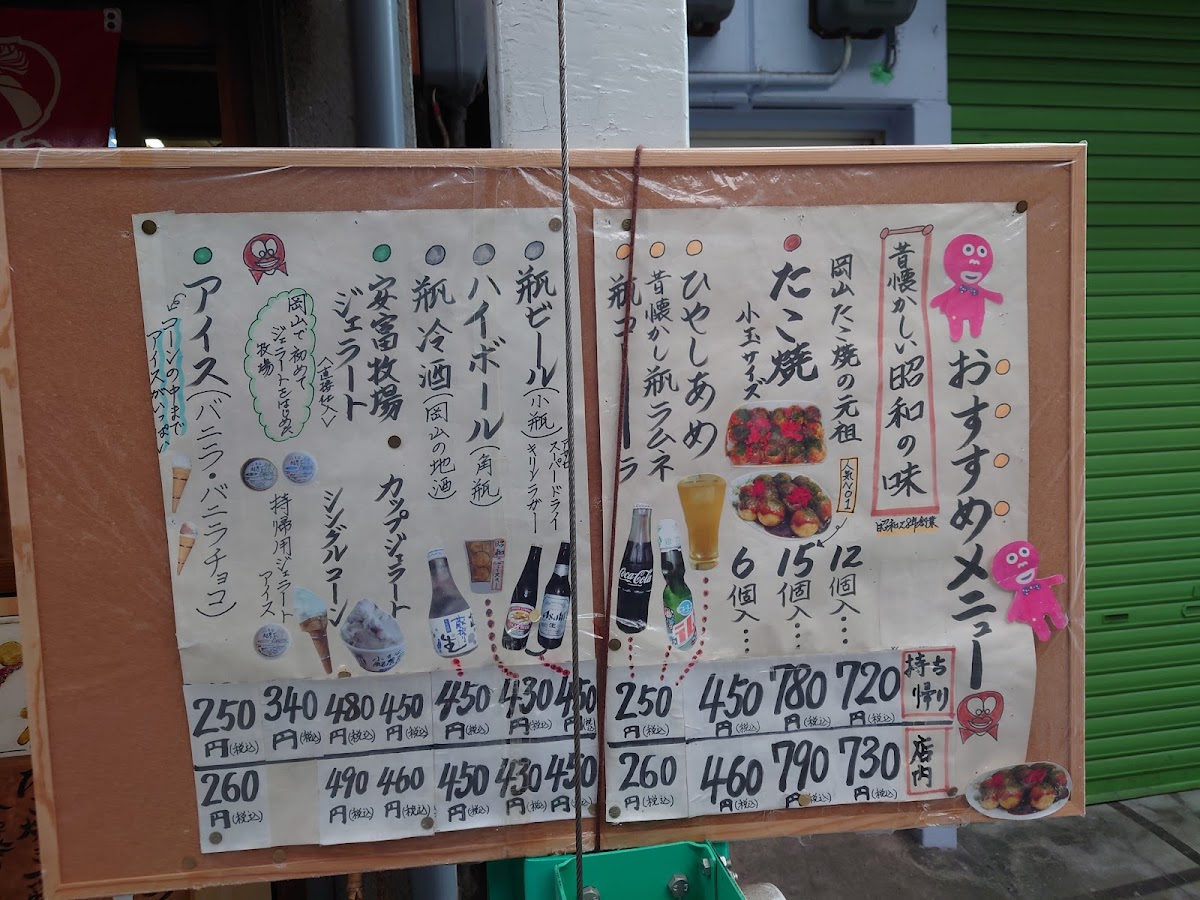 おすすめメニュー
昔懐かしい昭和の味
昭和28年創業
岡山たこ焼の元祖
たこ焼
小玉サイズ
人気NO1
12個入
15個入
6個入
ひやしあめ
昔懐かし瓶ラムネ
瓶コーラ
Coca-Cola
持ち帰り
720円(税込)
780円(税込)
450円(税込)
250円(税込)
店内
730円(税込)
790円(税込)
460円(税込)
260円(税込)
瓶ビール(小瓶)
アサヒスーパードライ
キリンラガー
ハイボール(角瓶)
瓶冷酒(岡山の地酒)
安富牧場
ジェラート
〈直接仕入〉
カップジェラート
シングルコーン
岡山で初めて
ジェラートをはじめた
牧場
持帰用ジェラート
アイス
アイス(バニラ・バニラチョコ)
コーンの中まで
アイスがいっぱい
450円(税込)
430円(税込)
450円(税込)
450円(税込)
480円(税込)
340円(税込)
250円(税込)
450円(税込)
430円(税込)
450円(税込)
460円(税込)
490円(税込)
260円(税込)